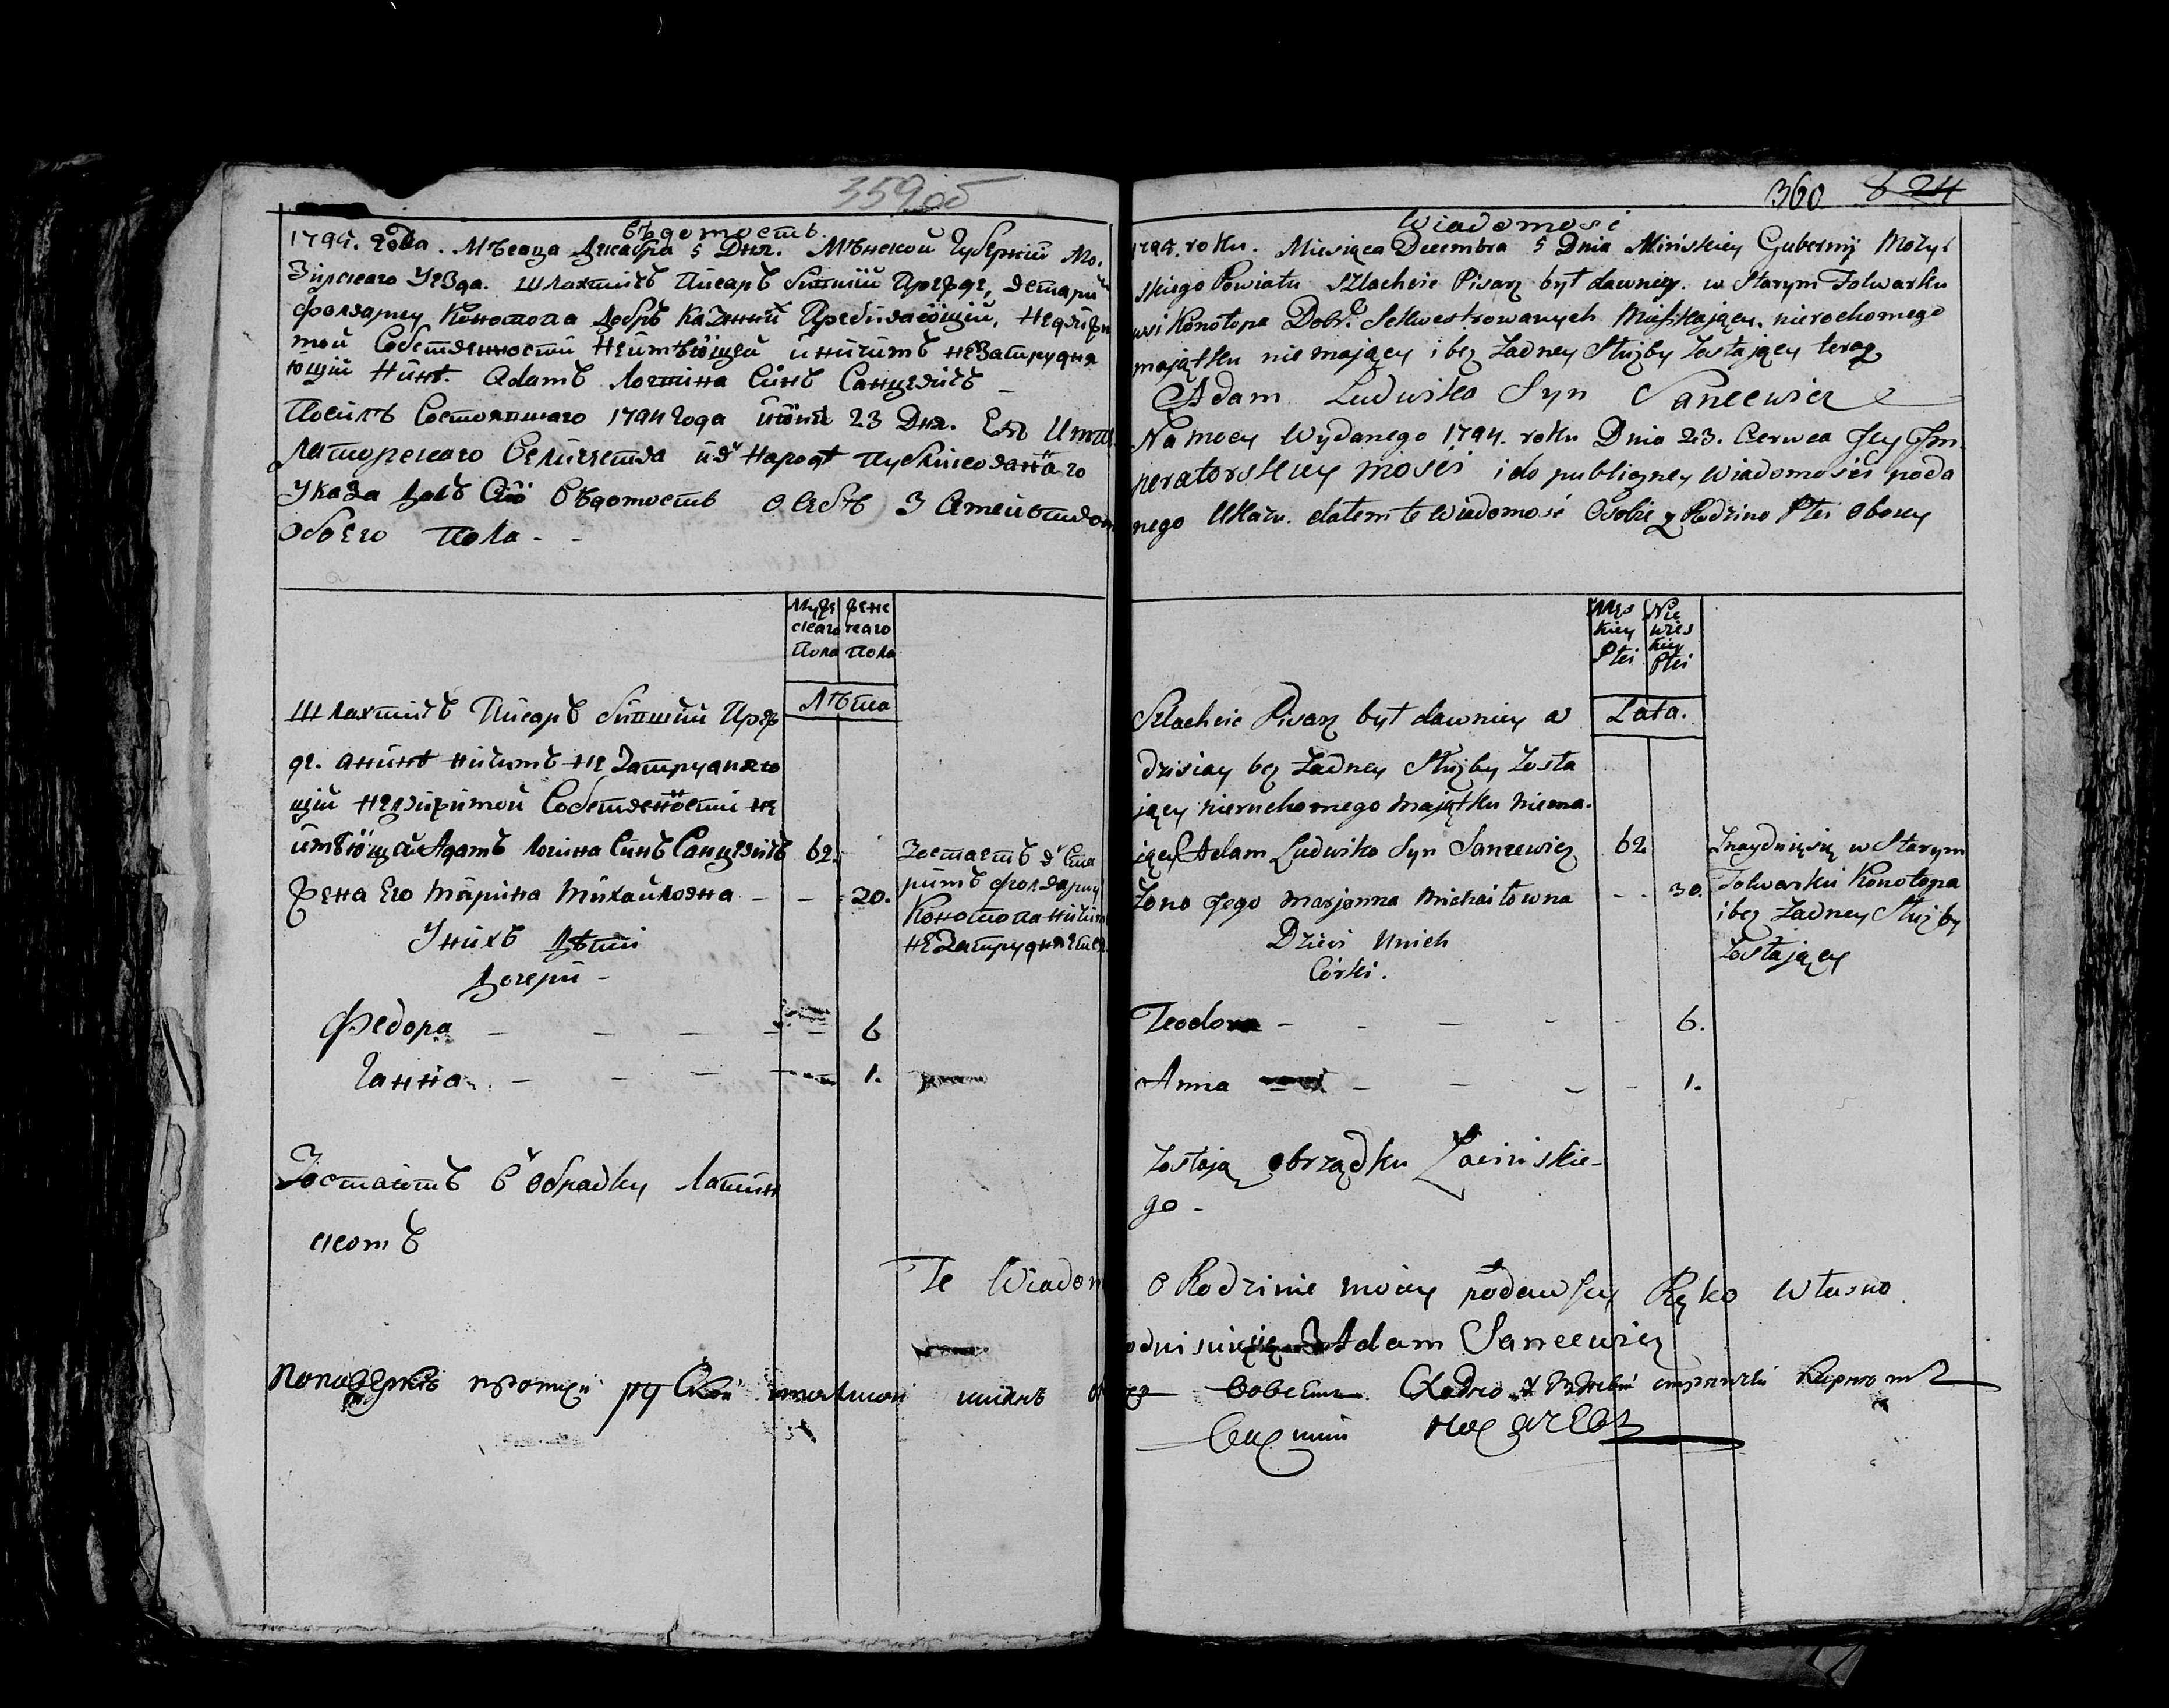 359об
вѣдомость
1795. года. Мѣсаца Декабра 5 Дня. Мѣнской Губернїи Мо-
зирскаго Уезда. Шляхтичъ Писаръ бившїй Прежде, встари
фолварку Конотопа Добръ Казнний Пребивающїй, недвижи
мой Собственности Неимѣющей иничимъ незатрудня
ющїй Нинѣ. Адамъ Логвина Синъ Санцевичъ
Посилъ Состоявшаго 1794 года июня 23 Дня. Ея Импе
раторскаго Величества ив Народѣ публикованнаго
Указа Далъ Сїю Вѣдомость о себѣ З Семействомъ
обоего пола - -
Муже
скаго
Пола
жене
скаго
пола
Лѣта
Шляхтичъ Писаръ бившїй Преж
де. анинѣ ничимъ не Затрудняю
щїй недвижимой Собственности не
имѣющей Адамъ Логвина Синъ Санцевичъ 62.
Жена Его Марина Михайловна - - 20.
Зостаетъ в Ста
римъ фолварку
Конотопа ничим
не Затрудняетса
Унихъ Дѣти
Дочери -
Федора - - - - 6
Ганна - - - - 1.
Зостаютъ в обрадку Латин
скомъ
Te Wiadom
360 8 24
Wiadomosć
1794. roku. Miesiąca Decembra 5 Dnia Mińskiey Gubernij Mozyr
skiego Powiatu Szlachcic Pisarz był dawniey. w Starym Folwarku
wsi Konotopa Dobr Sekwestrowanych Mieszkaiący. nierochomego
majątku nie mający i bez Żadney Służby Zostający teraz
Adam Ludwika Syn Sancewicz
Na mocy Wydanego 1794. roku Dnia 23. Czerwca Jey Im-
peratorskiey mosci i do publiczney Wiadomosci poda
nego Ukazu. dałem te Wiadomość Osobie z Rodzino Płci Oboiey
Męs
kiey
Płci
Nie
wies
kiey
Płci
Lata.
Szlachcic Pisarz był dawniey a
dzisiay bez Żadney Służby Zosta
iący nieruchomego majątku niema-
iący Adam Ludwika Syn Sancewicz 62
Żona Jego Marjanna Michaiłowna - - 30.
Znayduięsię w Starym
Folwarku Konotopa
i bez Żadney Służby
Zostający
Dzieci Unich
Córki.
Teodora - - - - - 6.
Anna - - - - 1.
Zostają obrządku Łacińskie-
go -
O Rodzinie moiey podawszy Ręko Własno
Adam Sancewicz